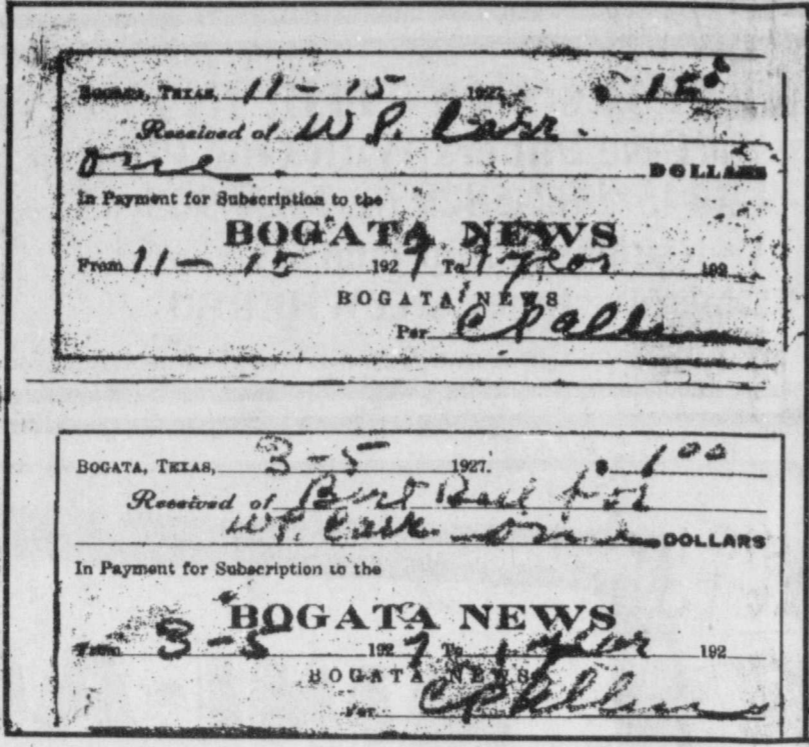 BOGATA, TEXAS, 11-15 1927. $ 1.50
Received of W P. Carr.
one DOLLARS
In Payment for Subscription to the
BOGATA NEWS
From 11-15 1927 To 1 year 192
BOGATA NEWS
Per
BOGATA, TEXAS, 3-5 1927. $ 1 00
Received of Bert Bell for
W P. Carr. one DOLLARS
In Payment for Subscription to the
BOGATA NEWS
From 3-5 1927 To 1 year 192
BOGATA NEWS
Per